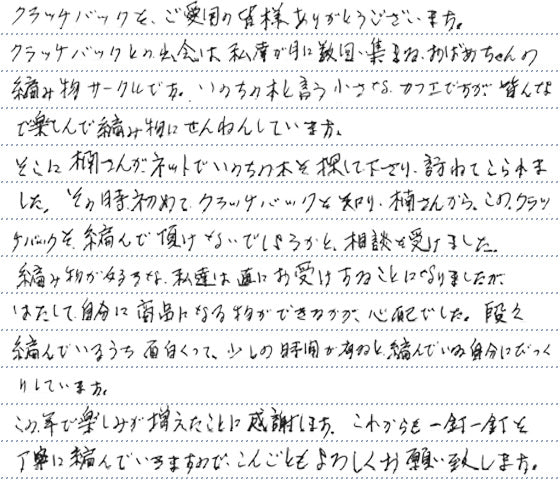 クラッチバックを、ご愛用の皆様ありがとうございます。
クラッチバックとの出会は、私達が月に数回、集まる、おばあちゃんの
編み物サークルです。いのちの木と言う小さな、カフエですが皆んな
で楽しんで編み物にせんねんしています。
そこに楠さんがネットでいのちの木を探して下さり、訪ねてこられま
した。その時、初めて、クラッチバックを知り、楠さんから、この、クラッ
チバックを、編んで頂けないでしょうかと、相談を受けました。
編み物が好きな、私達は直にお受けすることになりましたが、
はたして、自分に商品になる物ができるかが、心配でした。段々
編んでいるうち面白くって、少しの時間が有ると、編んでいる自分にびっく
りしています。
この年で楽しみが増えたことに感謝します。これからも一針一針を
丁寧に編んでいきますので、こんごともよろしくお願い致します。